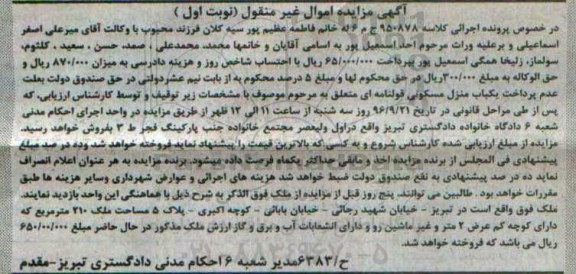 آگهی مزایده اموال غیر منقول (نوبت اول )
در خصوص پرونده اجرائی کلاسه ۹۵۰۸۷۸ ج م ۶ له خانم فاطمه عظیم پور سیه کلان فرزند محبوب با وکالت آقای میرعلی اصغر
اسماعیلی و برعلیه وراث مرحوم احد اسمعیل پور به اسامی آقایان و خانمها محمد، محمدعلی ، صمد، حسن ، سعید ، کلثوم،
سولماز، زلیخا همگی اسمعیل پور بپرداخت ۶۵/۰۰۰/۰۰۰ ریال با احتساب شاخص روز و هزینه دادرسی به میزان ۸۷۰/۰۰۰ ریال و
حق الوکاله به مبلغ ۳۰۰/۰۰۰ ریال در حق محکوم لها و مبلغ ۵ درصد محکوم به از بابت نیم عشردولتی در حق صندوق دولت بعلت
عدم پرداخت یکباب منزل مسکونی قولنامه ای متعلق به مرحوم موصوف با مشخصات زیر توقیف و توسط کارشناس ارزیابی، که
پس از طی مراحل قانونی در تاریخ ۹۶/۹/۲۱ روز سه شنبه از ساعت ۱۱ الی ۱۲ ظهر از طریق مزایده در واحد اجرای احکام مدنی
شعبه ۶ دادگاه خانواده دادگستری تبریز واقع دراول ولیعصر مجتمع خانواده جنب پارکینگ فجر ط ۳ بفروش خواهد رسید.
مزایده از مبلغ ارزیابی شده کارشناس شروع و به کسی که بالاترین قیمت را پیشنهاد نماید فروخته خواهد شد وده در صد مبلغ
پیشنهادی فی المجلس از برنده مزایده اخذ و مابقی حداکثر یکماه فرصت داده میشود. برنده مزایده به هر عنوان اعلام انصراف
نماید ده در صد پیشنهادی به نفع صندوق دولت ضبط خواهد شد هزینه های اجرائی و عوارض شهرداری وسایر هزینه ها طبق
مقررات خواهد بود . طالبین می توانند، پنج روز قبل از مزایده از ملک فوق الذکر به شرح ذیل با هماهنگی این واحد بازدید نمایند.
ملک فوق واقع است در تبریز - خیابان شهید رجائی - خیابان بابائی - کوچه اکبری - پلاک ۵ مساحت ملک ۲۱۰ مترمربع که
دارای کوچه کم عرض ۲ متر و غیر ماشین رو و دارای انشعابات آب و برق و گاز ارزش ملک مذکور در حال حاضر مبلغ ۶۵۰/۰۰۰/۰۰۰
ریال می باشد که فروخته خواهد شد.
ح/۶۳۸۳ مدیر شعبه ۶ احکام مدنی دادگستری تبریز-مقدم